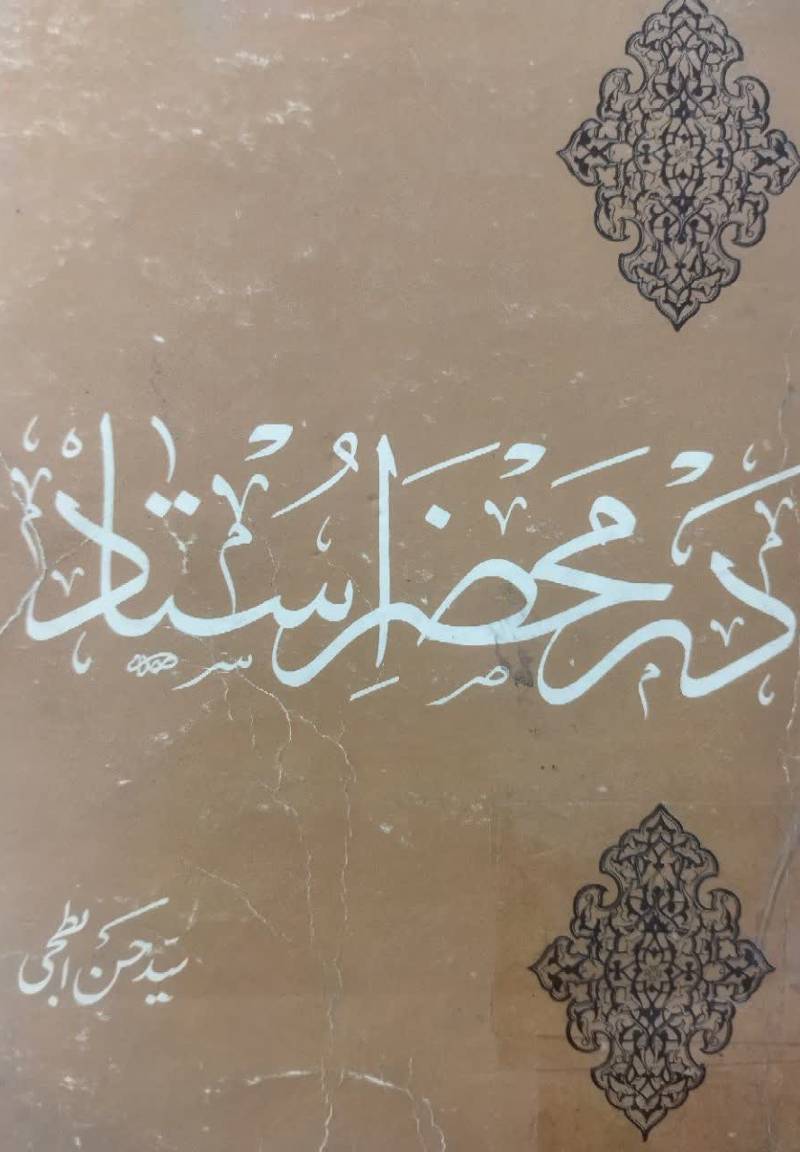 در محضر استاد
سید حسن ابطحی